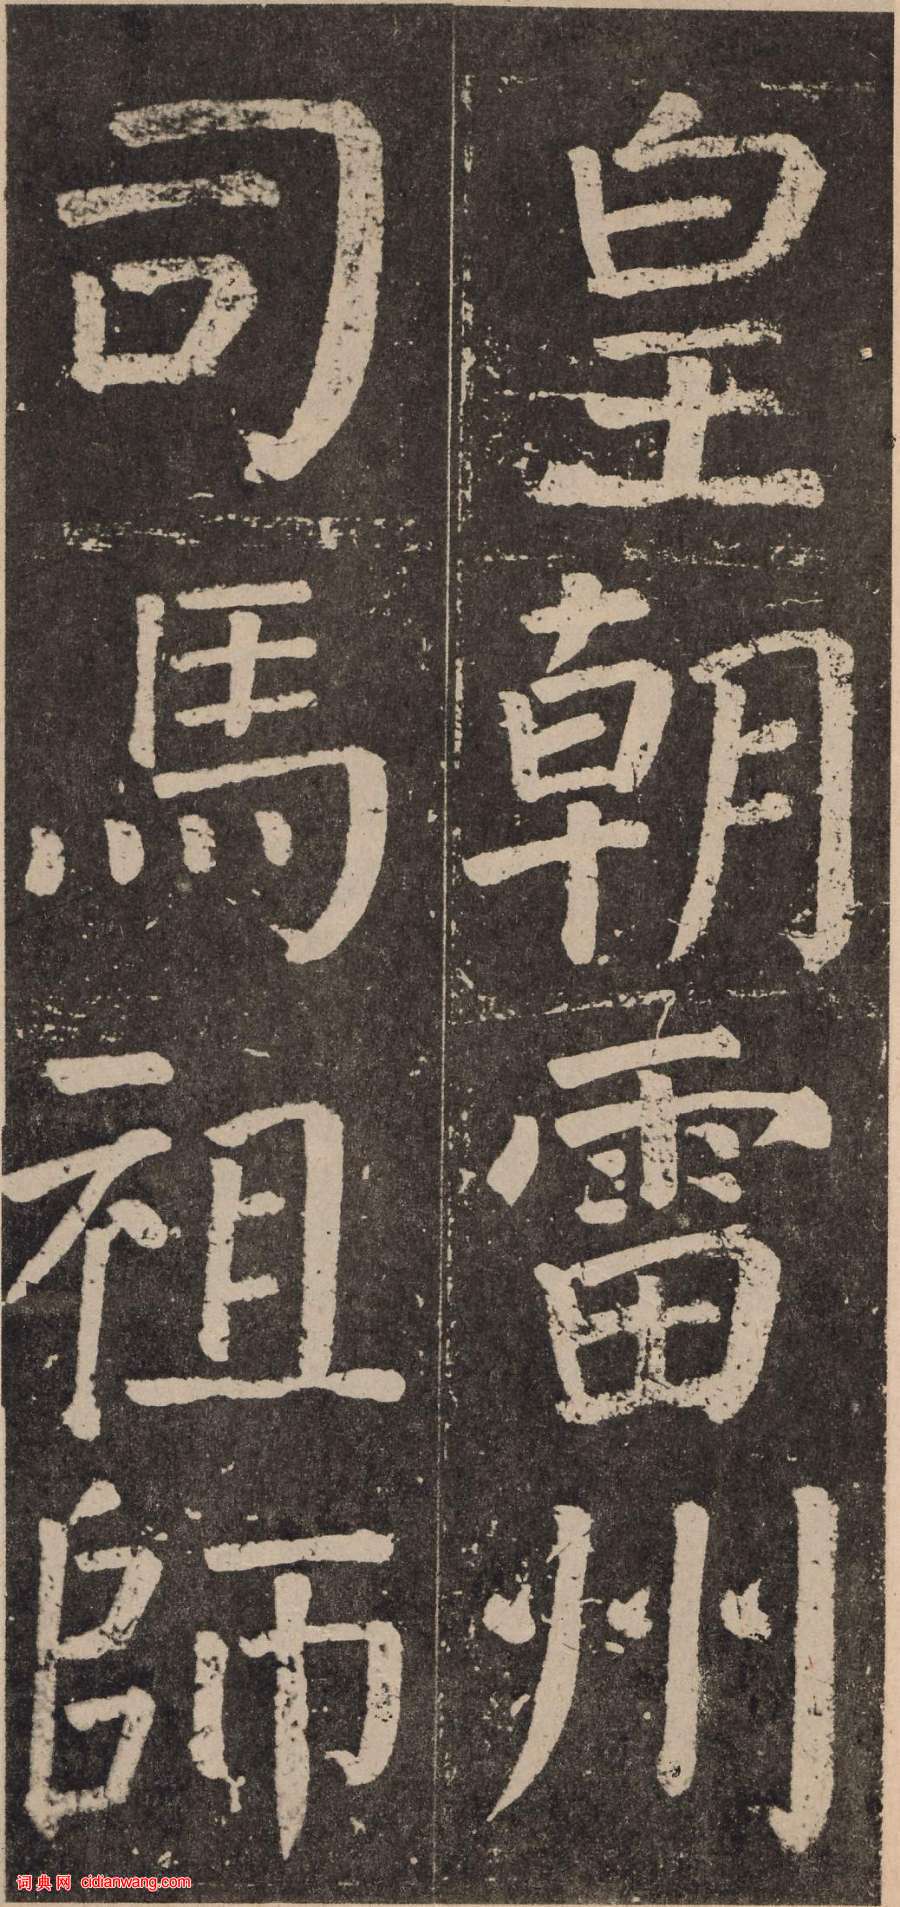 皇朝雷州
司馬祖師
词典网 cidianwang.com